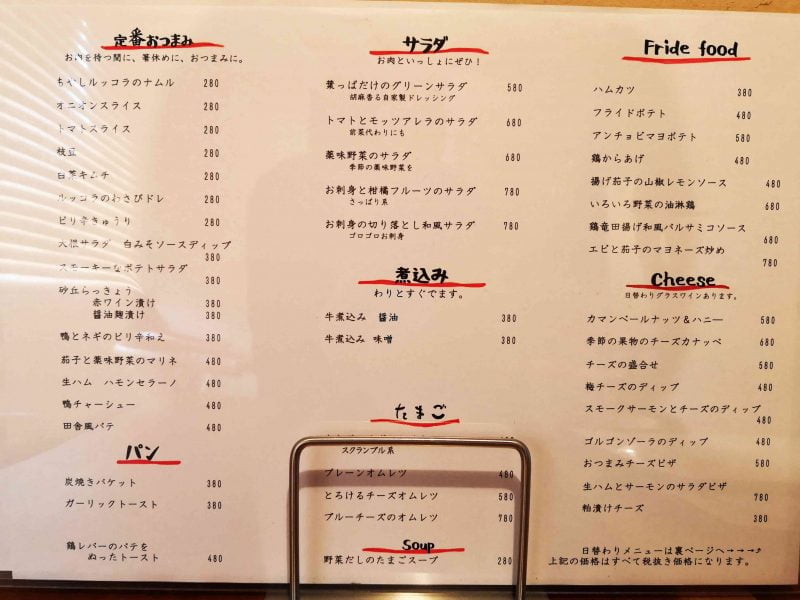 定番おつまみ
お肉を待つ間に、箸休めに、おつまみに。
もやしルッコラのナムル 280
オニオンスライス 280
トマトスライス 280
枝豆 280
白菜キムチ 280
ルッコラのわさびドレ 280
ピリ辛きゅうり 280
大根サラダ 白みそソースディップ 380
スモーキーなポテトサラダ 380
砂丘らっきょう
赤ワイン漬け 380
醤油麹漬け 380
鴨とネギのピリ辛和え 380
茄子と薬味野菜のマリネ 480
生ハム ハモンセラーノ 480
鴨チャーシュー 480
田舎風パテ 480
パン
炭焼きバケット 380
ガーリックトースト 380
鶏レバーのパテを
ぬったトースト 480
サラダ
お肉といっしょにぜひ！
葉っぱだけのグリーンサラダ 580
胡麻香る自家製ドレッシング
トマトとモッツアレラのサラダ 680
前菜代わりにも
薬味野菜のサラダ 680
季節の薬味野菜を
お刺身と柑橘フルーツのサラダ 780
さっぱり系
お刺身の切り落とし和風サラダ 780
ゴロゴロお刺身
煮込み
わりとすぐでます。
牛煮込み 醤油 380
牛煮込み 味噌 380
たまご
スクランブル系
プレーンオムレツ 480
とろけるチーズオムレツ 580
ブルーチーズのオムレツ 780
Soup
野菜だしのたまごスープ 280
Fride food
ハムカツ 380
フライドポテト 480
アンチョビマヨポテト 580
鶏からあげ 480
揚げ茄子の山椒レモンソース 480
いろいろ野菜の油淋鶏 680
鶏竜田揚げ和風バルサミコソース
680
エビと茄子のマヨネーズ炒め
780
Cheese
日替わりグラスワインあります。
カマンベールナッツ＆ハニー 580
季節の果物のチーズカナッペ 680
チーズの盛合せ 580
梅チーズのディップ 480
スモークサーモンとチーズのディップ
480
ゴルゴンゾーラのディップ 480
おつまみチーズピザ 580
生ハムとサーモンのサラダピザ
780
粕漬けチーズ
380
日替わりメニューは裏ページへ→→→⤴
上記の価格はすべて税抜き価格になります。